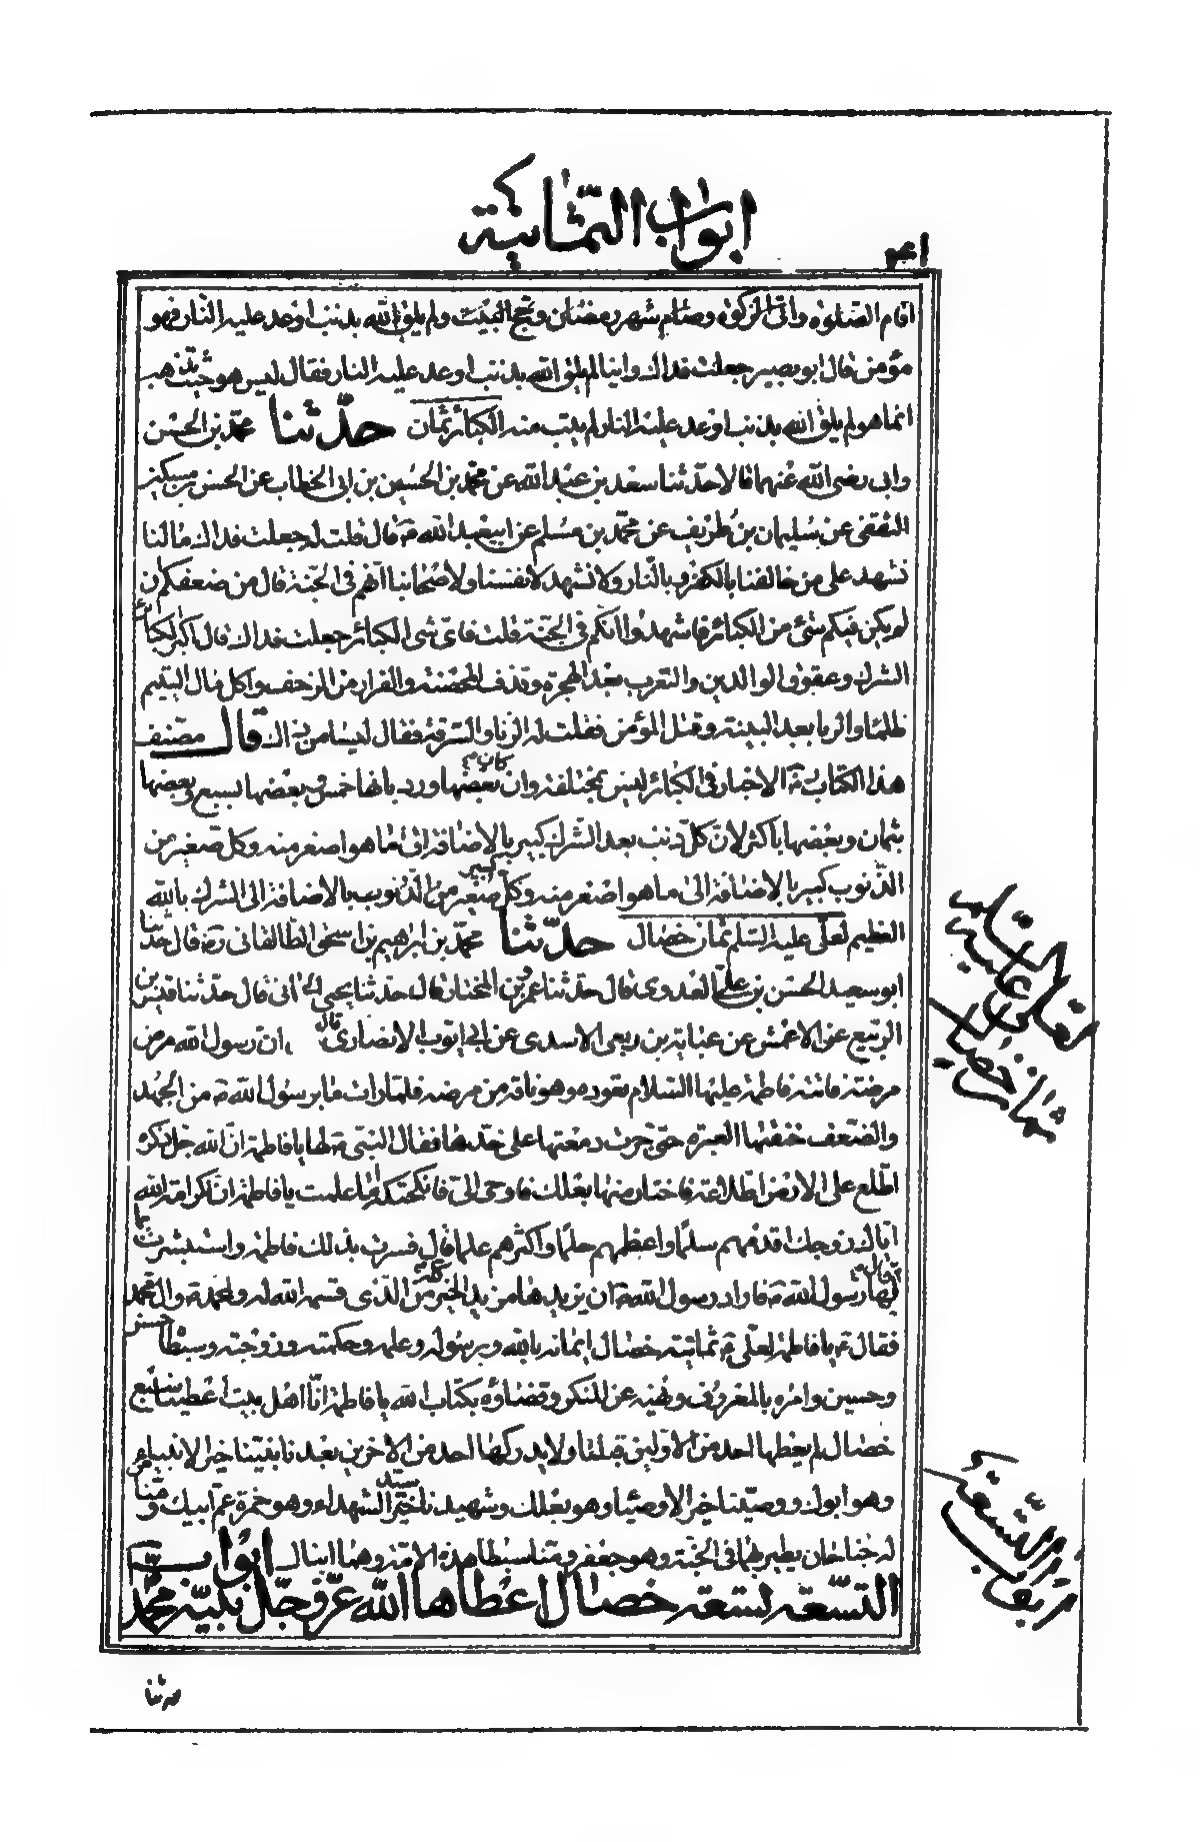 ابواب الثمانية
اقام الصلوة واتى الزكوة وصام شهر رمضان وحج البيت ولم يلق الله بذنب اوعد عليه النار فهو
مؤمن قال ابو بصير جعلت فداك واينا لم يلق الله بذنب اوعد عليه النار فقال ليس هو حيث تذهب
انما هو لم يلق الله بذنب اوعد عليه النار لم يتب منه الكبائر ثمان حدثنا محمد بن الحسن
وابى رضى الله عنهما قالا حدثنا سعد بن عبد الله عن محمد بن الحسين بن ابى الخطاب عن الحسن بن مسكين
الثقفى عن سليمان بن طريف عن محمد بن مسلم عن ابيعبد الله ع قال قلت له جعلت فداك ما لنا
نشهد على من خالفنا بالكفر وبالنار ولا نشهد لانفسنا ولاصحابنا انهم فى الجنة قال من ضعفكم ان
لم يكن فيكم شئ من الكبائر فاشهدوا انكم فى الجنة قلت فاى شئ الكبائر جعلت فداك قال اكبر الكبائر
الشرك وعقوق الوالدين والتعرب بعد الهجرة وقذف المحصنة والفرار من الزحف واكل مال اليتيم
ظلما والربا بعد البينة وقتل المؤمن فقلت له الزنا والسرقة فقال ليسا من ذلك قال مصنف
هذا الكتاب ره الاخبار فى الكبائر ليس بمختلفة وان كان بعضها ورد بانها خمس وبعضها بسبع وبعضها
بثمان وبعضها باكثر لان كل ذنب بعد الشرك كبير بالاضافة الى ما هو اصغر منه وكل صغير من
الذنوب كبير بالاضافة الى ما هو اصغر منه وكل كبير صغير من الذنوب بالاضافة الى الشرك بالله
العظيم لعلى عليه السلم ثمان خصال حدثنا محمد بن ابراهيم بن اسحق الطالقانى ره قال حدثنا
ابو سعيد الحسن بن على العدوى قال حدثنا عمرو بن المختار قال حدثنا يحيى الحمانى قال حدثنا قيس بن
الربيع عن الاعمش عن عباية بن ربعى الاسدى عن ابى ايوب الانصارى قال ان رسول الله مرض
مرضة فاتته فاطمة عليها السلام تعوده وهو ناقه من مرضه فلما رات ما برسول الله ص من الجهد
والضعف خنقتها العبرة حتى جرت دمعتها على خدها فقال النبى ص لها يا فاطمة ان الله جل ذكره
اطلع على الارض اطلاعة فاختار منها بعلك فاوحى الى فانكحتكه اما علمت يا فاطمة ان لكرامة الله
اياك زوجك اقدمهم سلما واعظمهم حلما واكثرهم علما قال فسرت بذلك فاطمة واستبشرت بما
قال لها رسول الله ص فاراد رسول الله ص ان يزيدها مزيد الخير كله من الذى قسمه الله له ولمحمد وال محمد
فقال ع يا فاطمة لعلى ع ثمانية خصال ايمانه بالله وبرسوله وعلمه وحكمته وزوجته وسبطا حسن
وحسين وامره بالمعروف ونهيه عن المنكر وقضاؤه بكتاب الله يا فاطمة انا اهل بيت اعطينا سبع
خصال لم يعطها احد من الاولين قبلنا ولا يدركها احد من الاخرين بعدنا نبينا خير الانبياء
وهو ابوك ووصينا خير الاوصيا وهو بعلك وشهيدنا سيد الشهداء وهو حمزة عم ابيك ومنا من
له جناحان يطير بهما فى الجنة وهو جعفر ومنا سبطا هذه الامة وهما ابناك ابواب
التسعة تسعة خصال اعطاها الله عز وجل نبيه محمد
لعلى عليه السلم
ثمان خصال
ابواب التسعة